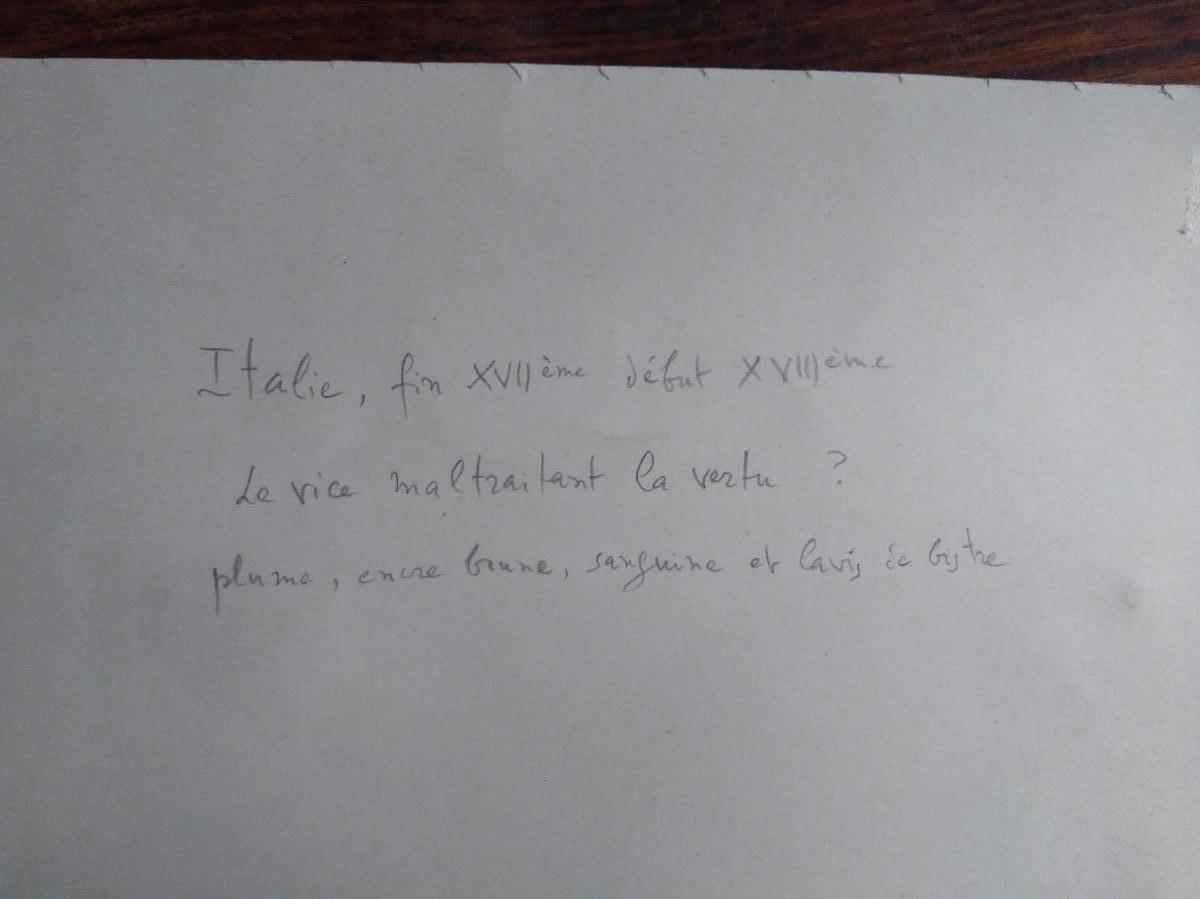 Italie, fin XVIIème début XVIIIème
Le vice maltraitant la vertu ?
plume, encre brune, sanguine et lavis de bistre